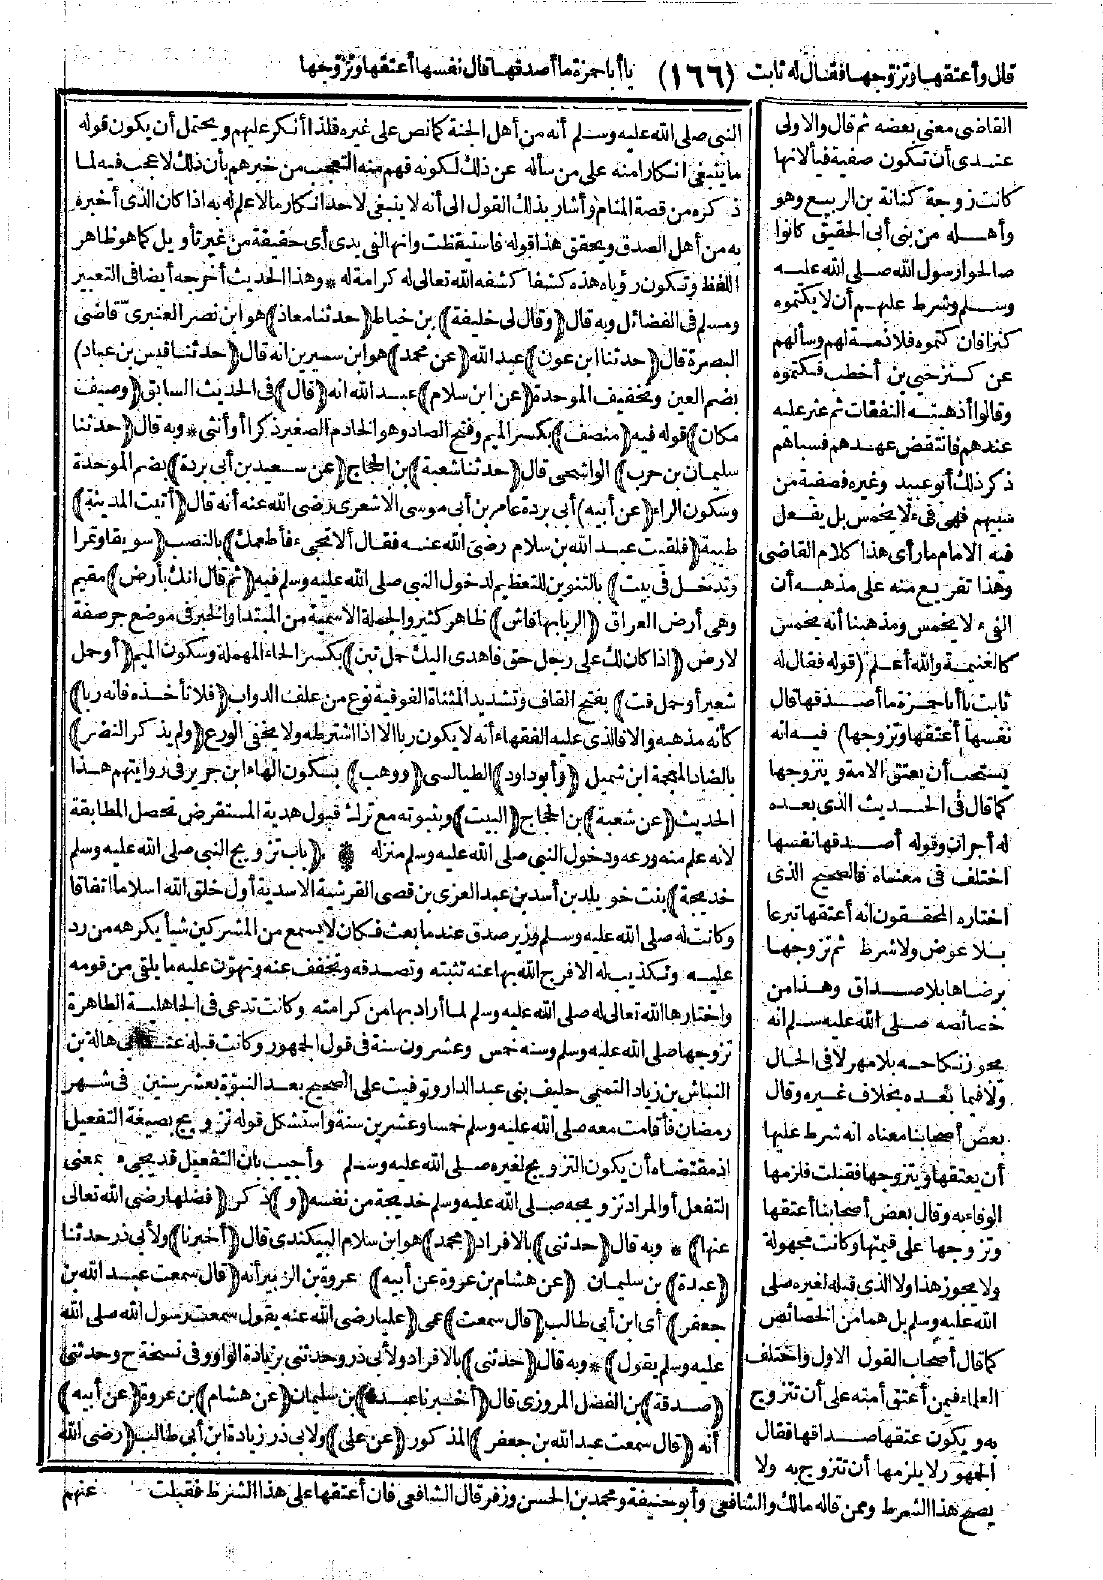 قال وأعتقها وتزوجها فقال له ثابت (١٦٦) يا أبا حمزة ما أصدقها قال نفسها أعتقها وتزوجها
النبي صلى الله عليه وسلم أنه من أهل الجنة كما نص على غيره فلذا أنكر عليهم ويحتمل أن يكون قوله
ما ينبغى انكارا منه على من سأله عن ذلك لكونه فهم منه التعجب من خبرهم بأن ذلك لا عجب فيه لما
ذكره من قصة المنام وأشار بذلك القول الى أنه لا ينبغى لاحد انكار ما لا علم له به اذا كان الذى أخبره
به من أهل الصدق ويحقق هذا قوله فاستيقظت وانها لفى يدى أى حقيقة من غير تأويل كما هو ظاهر
اللفظ وتكون رؤياه هذه كشفا كشفه الله تعالى له كرامة له * وهذا الحديث أخرجه أيضا فى التعبير
ومسلم فى الفضائل وبه قال (وقال لى خليفة) بن خياط (حدثنا معاذ) هو ابن نصر العنبرى قاضى
البصرة قال (حدثنا ابن عون) عبد الله (عن محمد) هو ابن سيرين انه قال (حدثنا قيس بن عباد)
بضم العين وتخفيف الموحدة (عن ابن سلام) عبد الله انه (قال) فى الحديث السابق (وصيف
مكان) قوله فيه (منصف) بكسر الميم وفتح الصاد وهو الخادم الصغير ذكرا أو أنثى * وبه قال (حدثنا
سليمان بن حرب) الواشحى قال (حدثنا شعبة) بن الحجاج (عن سعيد بن أبى بردة) بضم الموحدة
وسكون الراء (عن أبيه) أبى بردة عامر بن أبى موسى الاشعرى رضى الله عنه أنه قال (أتيت المدينة)
طيبة (فلقيت عبد الله بن سلام رضى الله عنه فقال ألا تجىء فأطعمك) بالنصب (سويقا وتمرا
وتدخل فى بيت) بالتنوين للتعظيم لدخول النبي صلى الله عليه وسلم فيه (ثم قال انك بأرض) مقيم
وهى أرض العراق (الربا بها فاش) ظاهر كثير والجملة الاسمية من المبتدا والخبر فى موضع جر صفة
لارض (اذا كان لك على رجل حق فاهدى اليك حمل تبن) بكسر الحاء المهملة وسكون الميم (أو حمل
شعير أو حمل قت) بفتح القاف وتشديد المثناة الفوقية نوع من علف الدواب (فلا تأخذه فانه ربا)
كأنه مذهبه والا فالذى عليه الفقهاء أنه لا يكون ربا الا اذا اشترطه ولا يخفى الورع (ولم يذكر النضر)
بالضاد المعجمة ابن شميل (وأبو داود) الطيالسى (ووهب) بسكون الهاء ابن جرير فى روايتهم هذا
الحديث (عن شعبة) بن الحجاج (البيت) وثبوته مع ترك قبول هدية المستقرض تحصل المطابقة
لانه علم منه ورعه ودخول النبي صلى الله عليه وسلم منزله * (باب تزويج النبي صلى الله عليه وسلم
خديجة) بنت خويلد بن أسد بن عبد العزى بن قصى القرشية الاسدية أول خلق الله اسلاما اتفاقا
وكانت له صلى الله عليه وسلم وزير صدق عندما بعث فكان لا يسمع من المشركين شيأ يكرهه من رد
عليه وتكذيب له الا فرج الله بها عنه تثبته وتصدقه وتخفف عنه وتهون عليه ما يلقى من قومه
واختارها الله تعالى له صلى الله عليه وسلم لما أراد بها من كرامته وكانت تدعى فى الجاهلية الطاهرة
تزوجها صلى الله عليه وسلم وسنه خمس وعشرون سنة فى قول الجمهور وكانت قبله عند أبى هالة بن
النباش بن زياد التميمى حليف بنى عبد الدار وتوفيت على الصحيح بعد النبوة بعشر سنين فى شهر
رمضان فأقامت معه صلى الله عليه وسلم خمسا وعشرين سنة واستشكل قوله تزويج بصيغة التفعيل
اذ مقتضاه أن يكون التزويج لغيره صلى الله عليه وسلم وأجيب بان التفعيل قد يجىء بمعنى
التفعل أو المراد تزويجه صلى الله عليه وسلم خديجة من نفسه (و) ذكر (فضلها رضى الله تعالى
عنها) * وبه قال (حدثنى) بالافراد (محمد) هو ابن سلام البيكندى قال (أخبرنا) ولأبى ذر حدثنا
(عبدة) بن سليمان (عن هشام بن عروة عن أبيه) عروة بن الزبير أنه (قال سمعت عبد الله بن
جعفر) أى ابن أبى طالب (قال سمعت) عمى (عليا رضى الله عنه يقول سمعت رسول الله صلى الله
عليه وسلم يقول) * وبه قال (حدثنى) بالافراد ولأبى ذر وحدثنى بزيادة الواو وفى نسخة ح وحدثنى
(صدقة) بن الفضل المروزى قال (أخبرنا عبدة) بن سليمان (عن هشام) بن عروة (عن أبيه)
أنه (قال سمعت عبد الله بن جعفر) المذكور (عن على) ولابى ذر زيادة ابن أبى طالب (رضى الله
القاضى معنى بعضه ثم قال والاولى
عندى أن تكون صفية فيأ لانها
كانت زوجة كنانة بن الربيع وهو
وأهله من بنى أبى الحقيق كانوا
صالحوا رسول الله صلى الله عليه
وسلم وشرط عليهم أن لا يكتموه
كنزا فان كتموه فلا ذمة لهم وسألهم
عن كنز حيى بن أخطب فكتموه
وقالوا أذهبته النفقات ثم عثر عليه
عندهم فانتقض عهدهم فسباهم
ذكر ذلك أبو عبيد وغيره فصفية من
سبيهم فهى فىء لا يخمس بل يفعل
فيه الامام ما رأى هذا كلام القاضى
وهذا تفريع منه على مذهبه أن
الفىء لا يخمس ومذهبنا أنه يخمس
كالغنيمة والله أعلم (قوله فقال له
ثابت يا أبا حمزة ما أصدقها قال
نفسها أعتقها وتزوجها) فيه انه
يستحب أن يعتق الامة ويتزوجها
كما قال فى الحديث الذى بعده
له أجران وقوله أصدقها نفسها
اختلف فى معناه فالصحيح الذى
اختاره المحققون انه أعتقها تبرعا
بلا عوض ولا شرط ثم تزوجها
برضاها بلا صداق وهذا من
خصائصه صلى الله عليه وسلم انه
يجوز نكاحه بلا مهر لا فى الحال
ولا فيما بعده بخلاف غيره وقال
بعض أصحابنا معناه انه شرط عليها
أن يعتقها ويتزوجها فقبلت فلزمها
الوفاء به وقال بعض أصحابنا أعتقها
وتزوجها على قيمتها وكانت مجهولة
ولا يجوز هذا ولا الذى قبله لغيره صلى
الله عليه وسلم بل هما من الخصائص
كما قال أصحاب القول الاول واختلف
العلماء فيمن أعتق أمته على أن تتزوج
به ويكون عتقها صداقها فقال
الجمهور لا يلزمها أن تتزوج به ولا
يصح هذا الشرط وممن قاله مالك والشافعى وأبو حنيفة ومحمد بن الحسن وزفر قال الشافعى فان أعتقها على هذا الشرط فقبلت عنهم